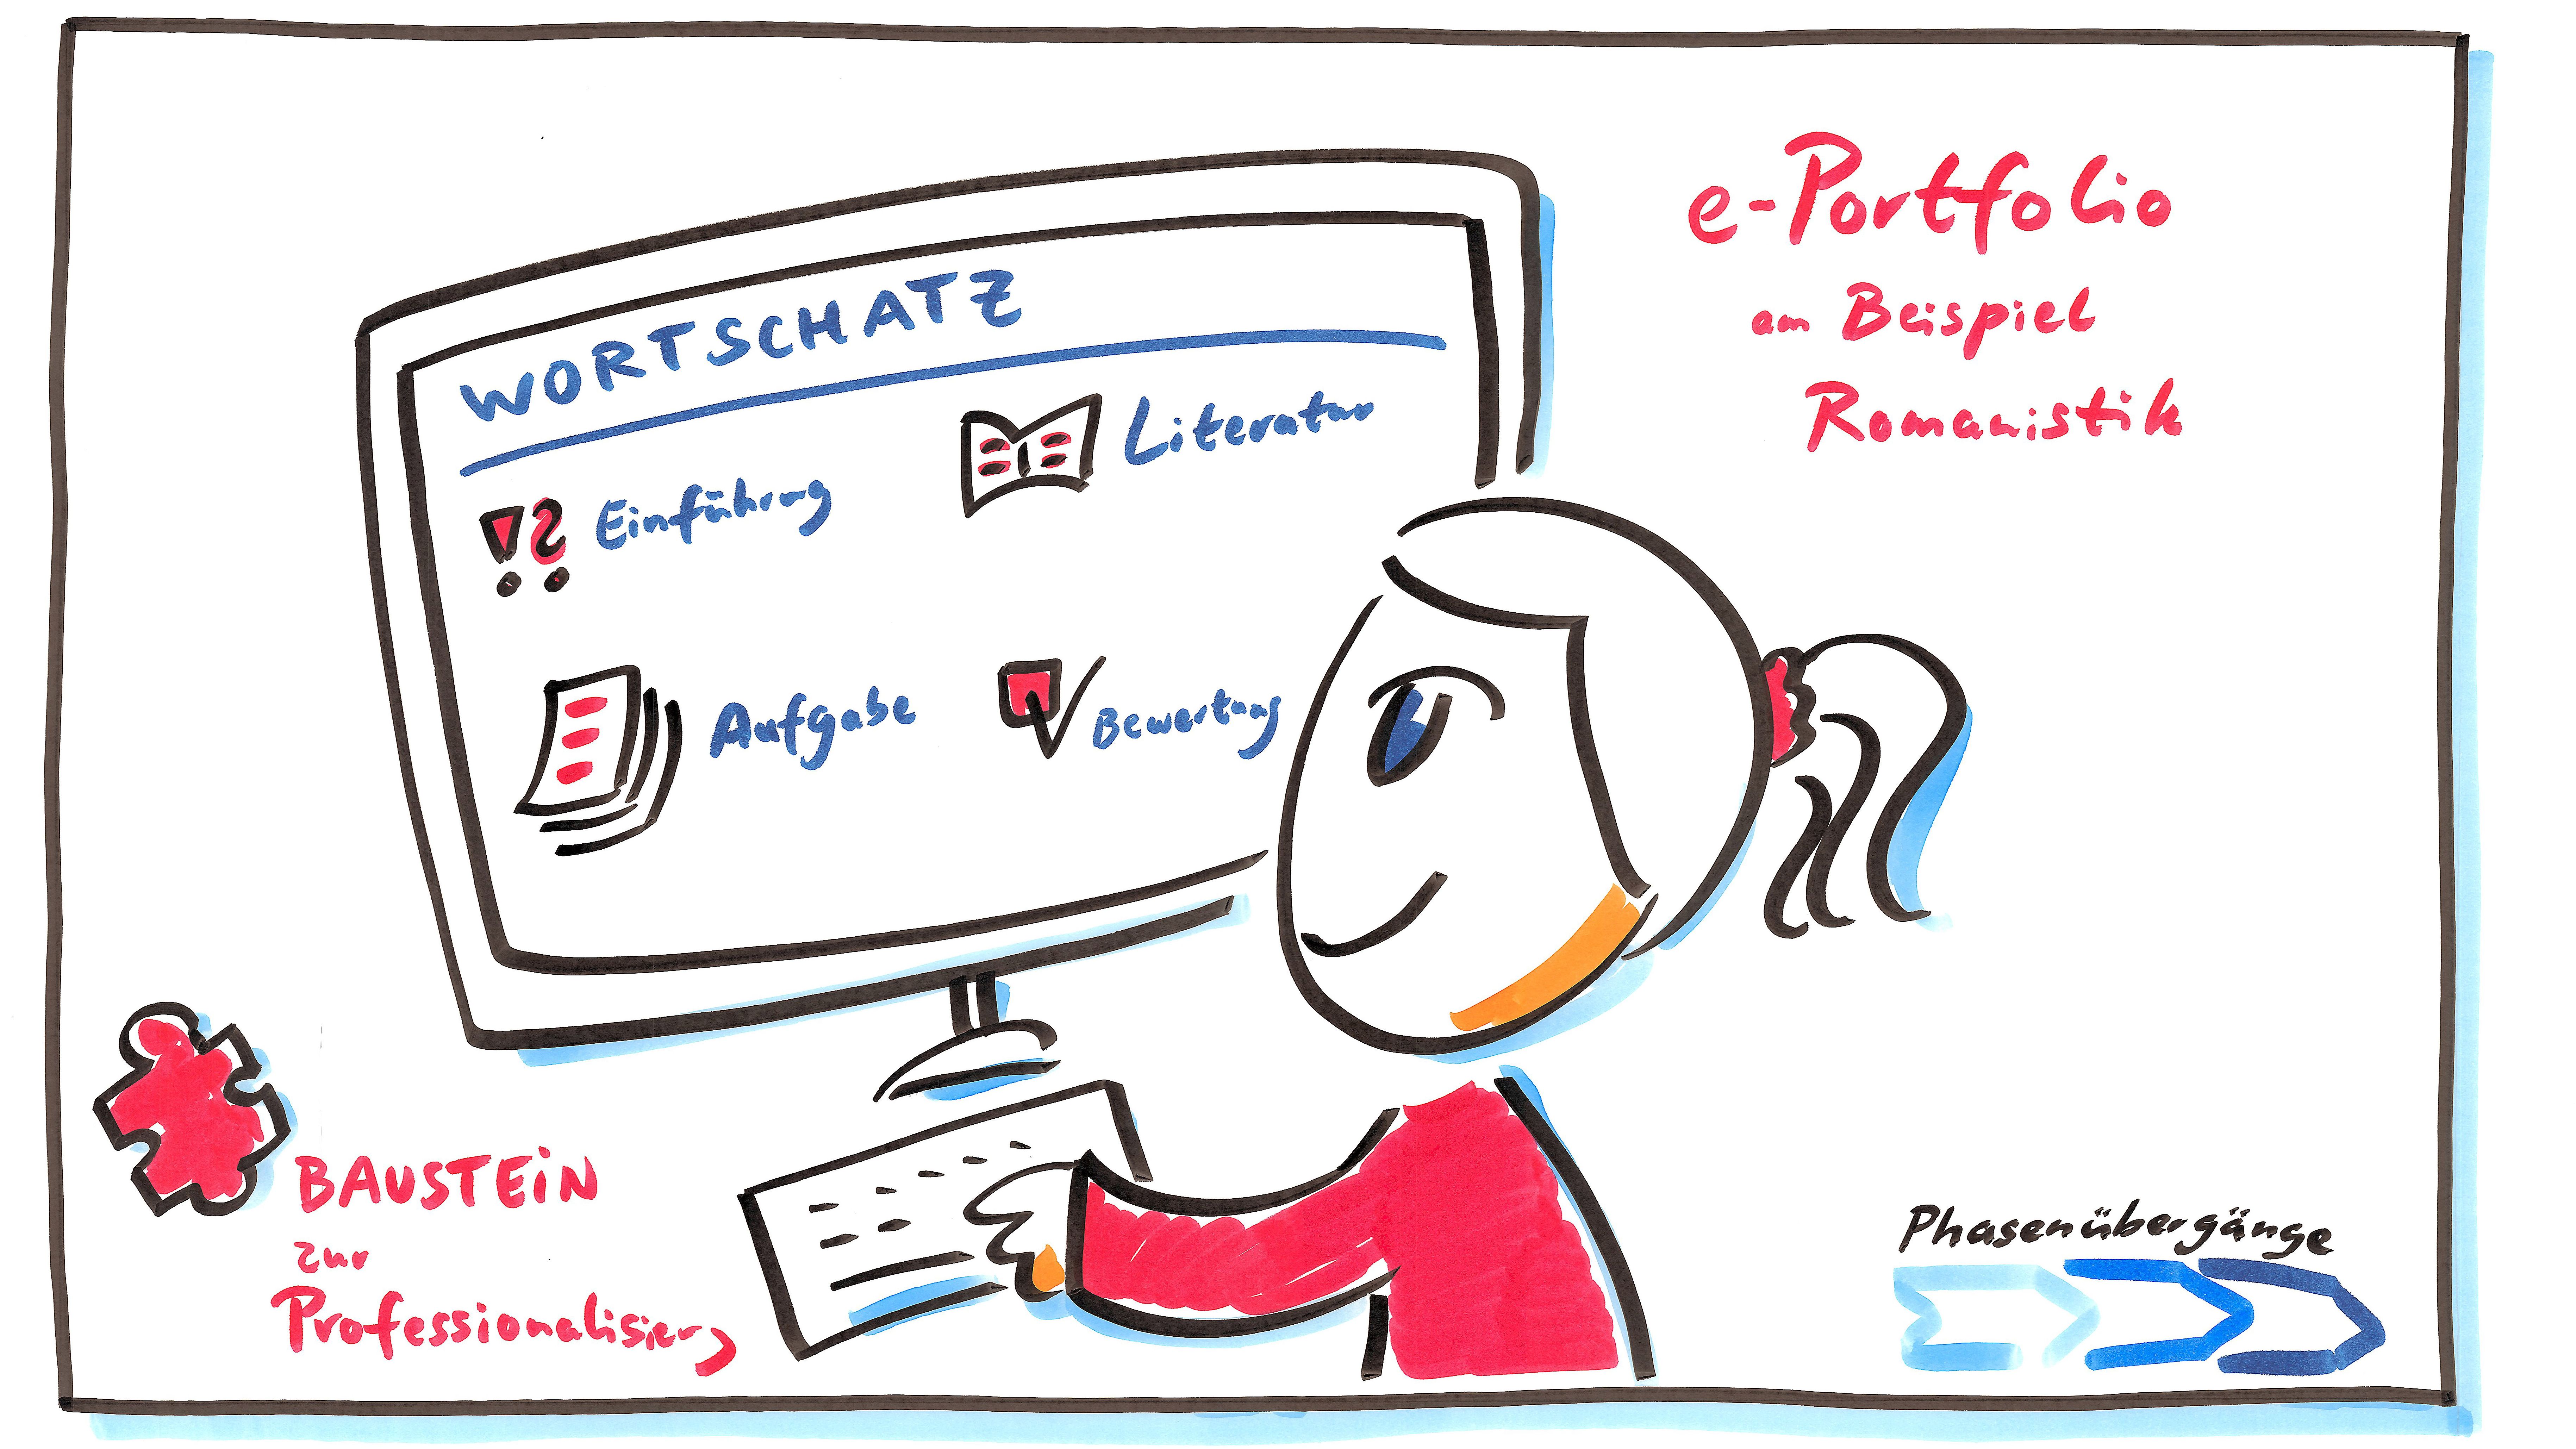 e-Portfolio
am Beispiel
Romanistik
WORTSCHATZ
Einführung
Literatur
Aufgabe
Bewertung
BAUSTEiN
zur
Professionalisierg
Phasenübergänge